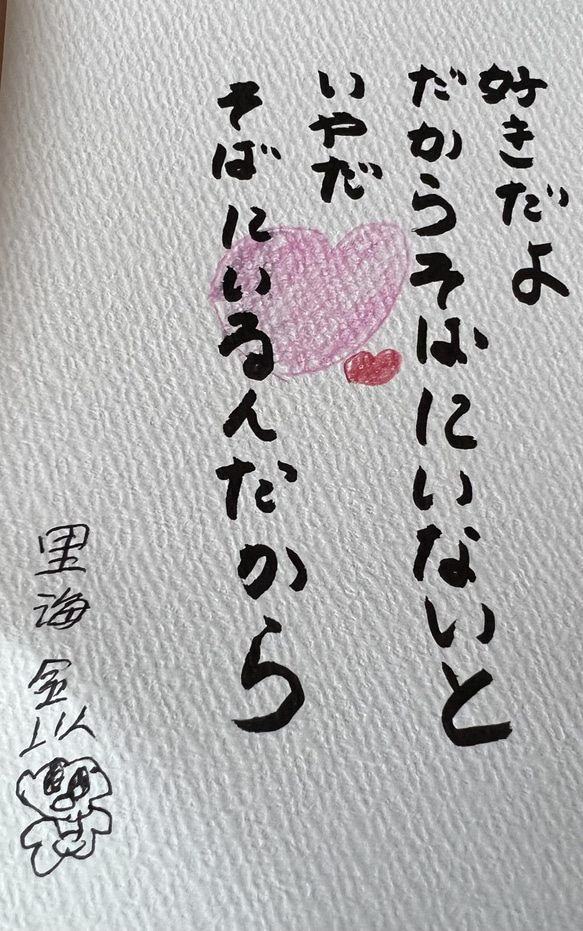 好きだよ
だからそばにいないと
いやだ
そばにいるんだから
里海